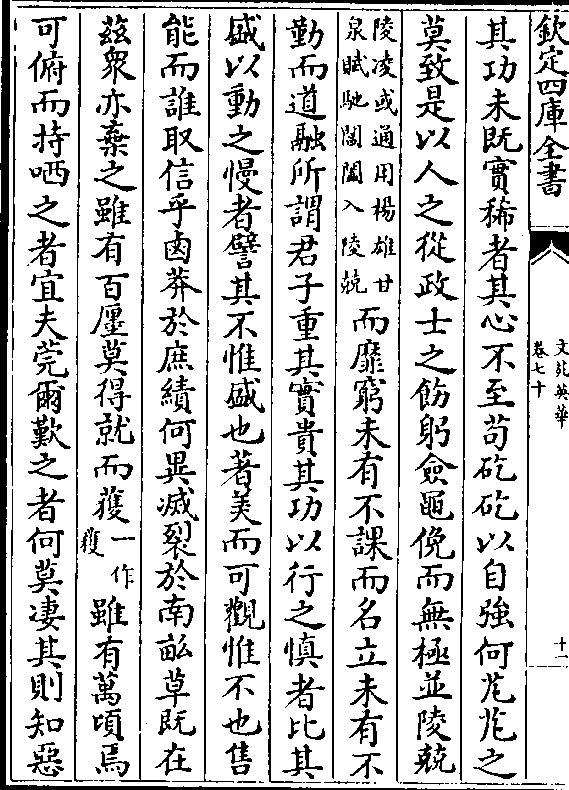 欽定四庫全書
文苑英華
卷七十
十一
其功未既實稀者其心不至苟矻矻以自強何芃芃之
莫致是以人之從政士之飭躬僉黽俛而無極並陵兢
陵凌或通用楊雄甘
泉賦馳閶闔入陵兢
而靡窮未有不課而名立未有不
勤而道融所謂君子重其實貴其功以行之慎者比其
盛以動之慢者譬其不惟盛也著美而可觀惟不也售
能而誰取信乎鹵莽於庶績何異滅裂於南畝草既在
茲衆亦棄之雖有百廛莫得就而蒦
一作
穫
雖有萬頃焉
可俯而持哂之者宜夫莞爾歎之者何莫凄其則知惡